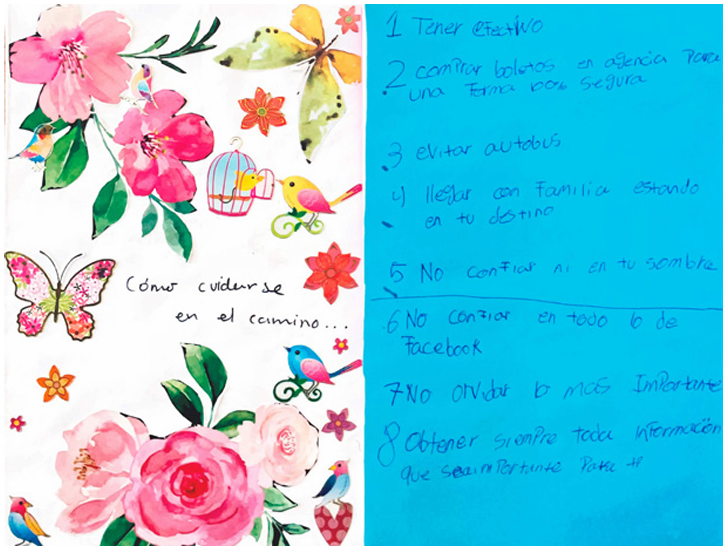 Cómo cuidarse
en el camino...
1 Tener efectivo
2 comprar boletos en agencia para
una forma 100% segura
3 evitar autobus
4 llegar con familia estando
en tu destino
5 No confiar ni en tu sombra
6 No confiar en todo lo de
Facebook
7 No olvidar lo mas importante
8 Obtener siempre toda información
que sea importante para ti